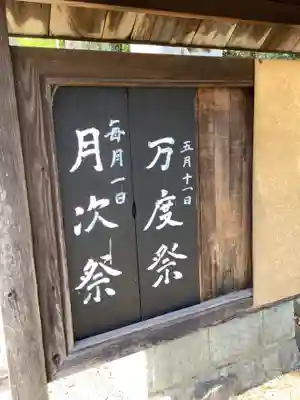 五月十一日
万度祭
毎月一日
月次祭